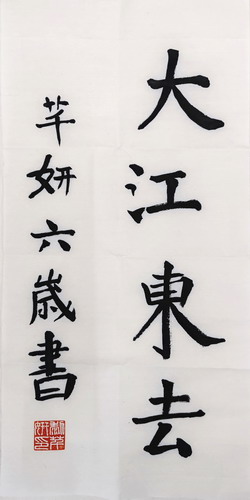 大江東去
芊妍六歲書